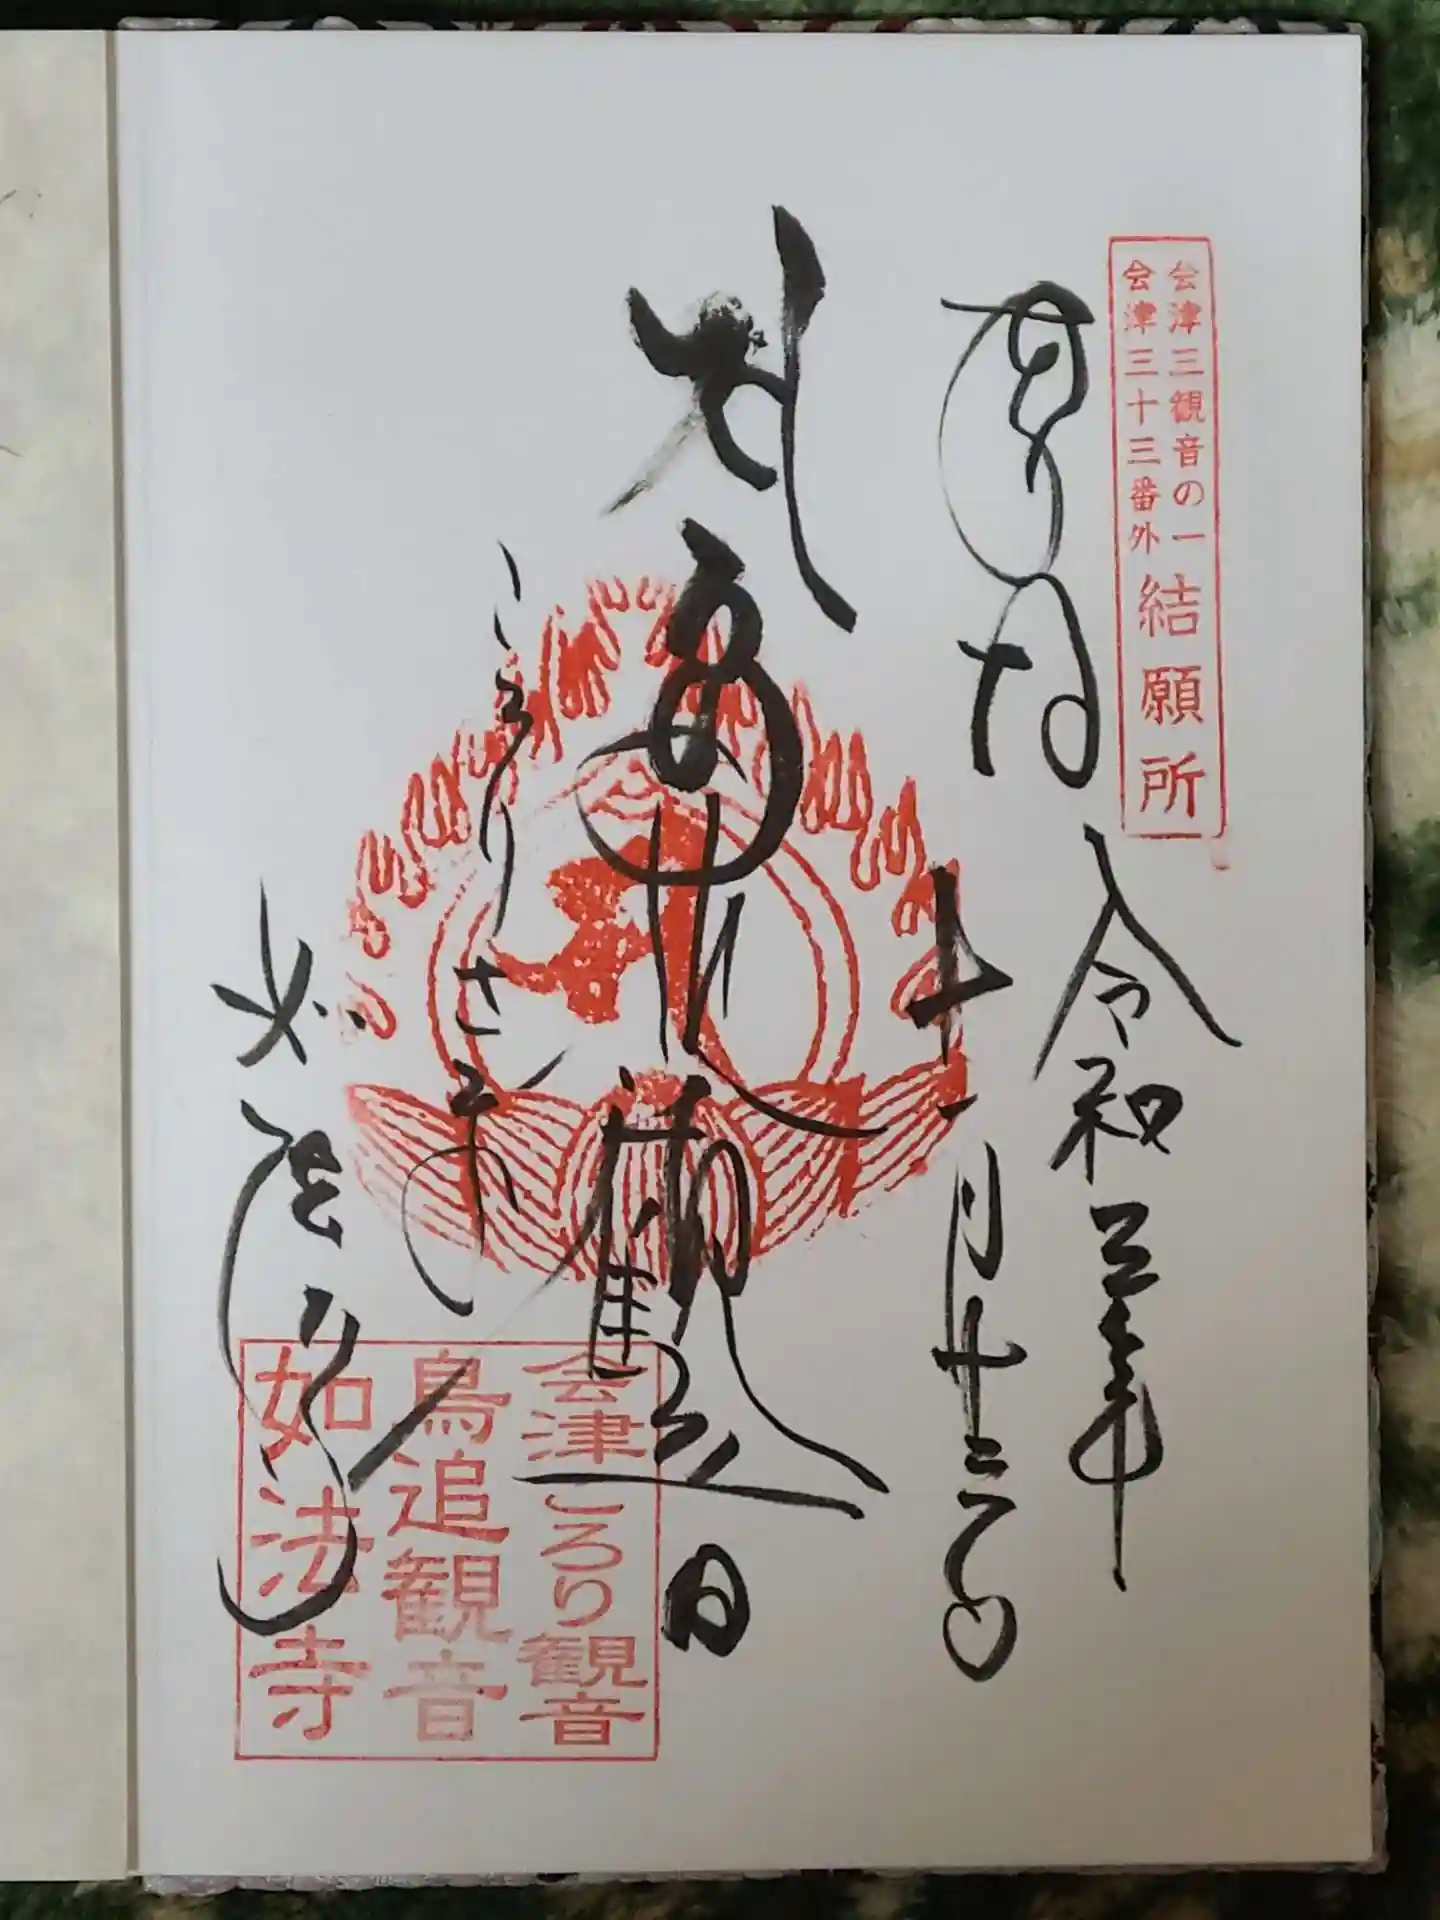 会津三観音の一
会津三十三番外
結願所
奉拝
令和三年
十一月十三日
鳥追観音
ころりさん
如法寺
会津ころり観音
鳥追観音
如法寺